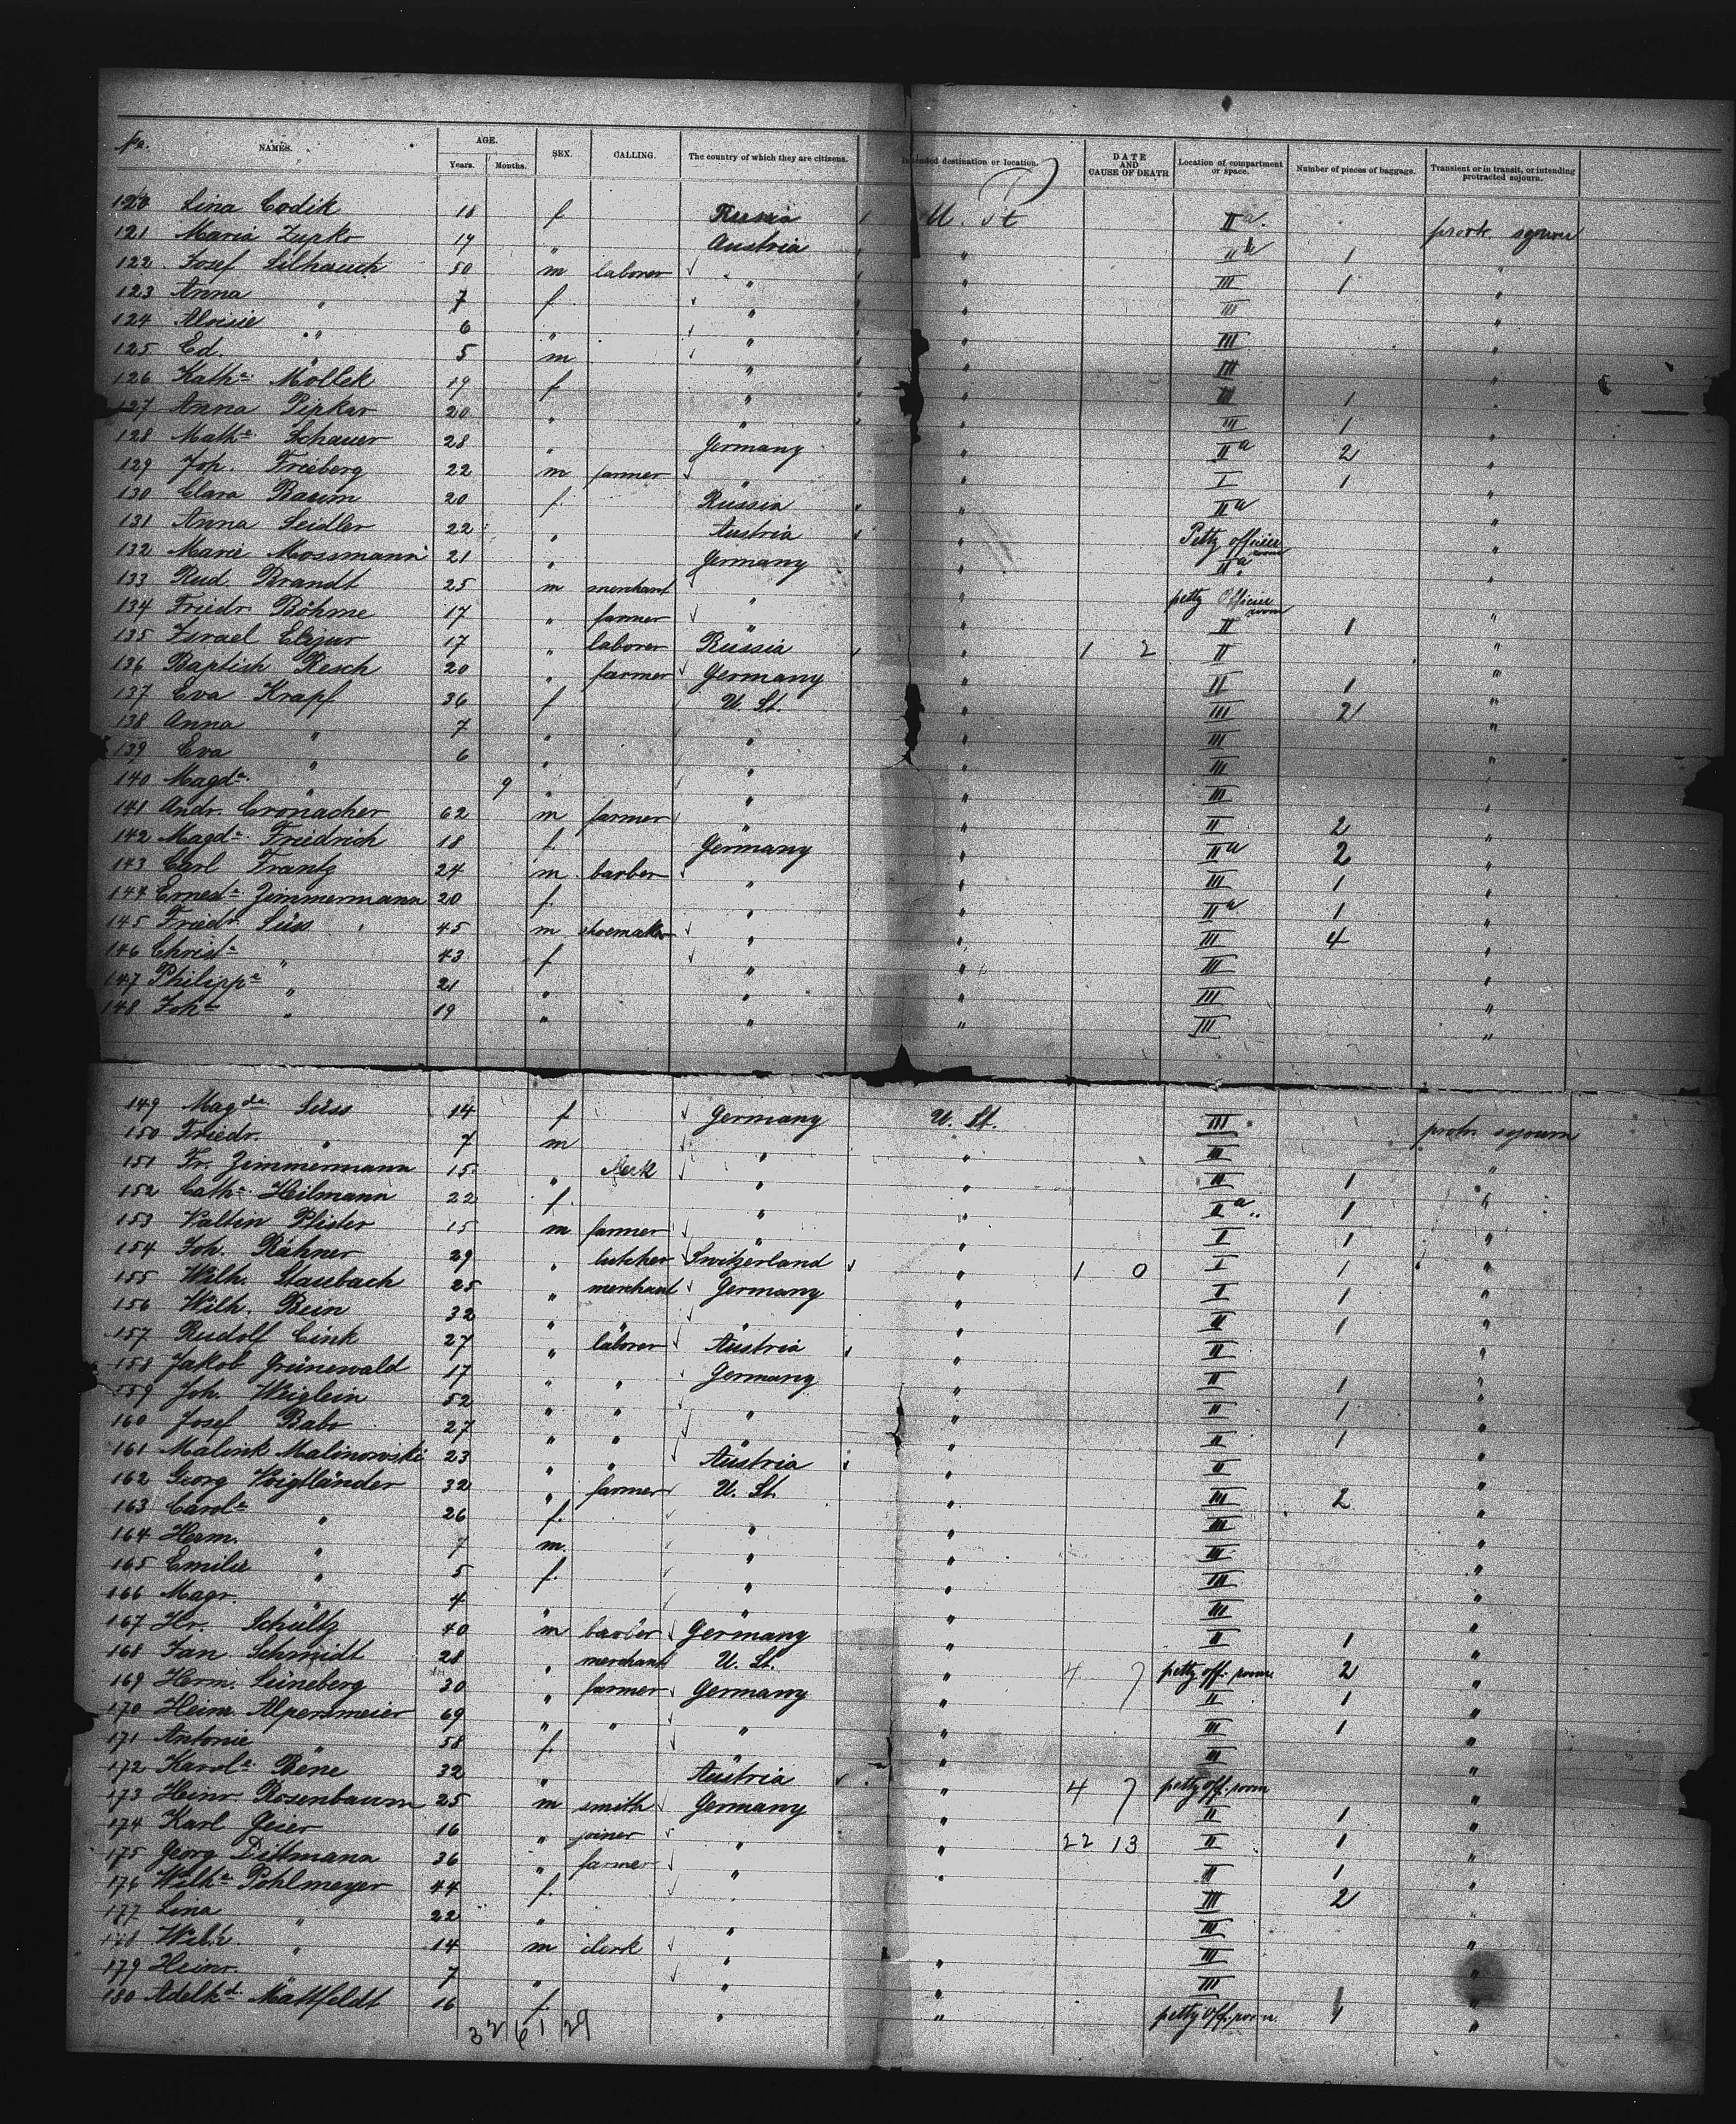 No. NAMES. AGE. Years. Months. SEX. CALLING. The country of which they are citizens. Intended destination or location. DATE AND CAUSE OF DEATH Location of compartment or space. Number of pieces of baggage. Transient or in transit, or intending protracted sojourn.
120 Lina Codik 18 f Russia U. St II a protr. sojourn
121 Maria Zupko 19 " Austria " II a 1 "
122 Josef Silhauek 50 m laborer " " III 1 "
123 Anna " 7 f " " III "
124 Aloisie " 6 " " " III "
125 Ed. " 5 m " " III "
126 Kath a. Mollek 19 f " " III 1 "
127 Anna Pipkar 20 " " " III 1 "
128 Math e. Schauer 28 " Germany " II a 2 "
129 Joh. Frieberg 22 m farmer " " I 1 "
130 Clara Baum 20 f. Russia " II a "
131 Anna Seidler 22 " Austria " Petty officier room "
132 Marie Mossmann 21 " Germany " II a "
133 Rud. Brandt 25 m merchant " " petty Officier room "
134 Friedr. Böhme 17 " farmer " " II 1 "
135 Israel Elijur 17 " laborer Russia " 1 2 II "
136 Baptish Resch 20 " farmer Germany " II 1 "
137 Eva Krapf 36 f U. St. " III 2 "
138 Anna " 7 " " " III "
139 Eva " 6 " " " III "
140 Magd a. " 9 " " " III "
141 Andr. Cronacher 62 m farmer " " II 2 "
142 Magd a. Friedrich 18 f. Germany " II a 2 "
143 Carl Frantz 24 m. barber " " III 1 "
144 Ernest e Zimmermann 20 f. " " II a 1 "
145 Friedr. Süss 45 m shoemaker " " III 4 "
146 Christ e " 43 f " " III "
147 Philipp e " 21 " " " III "
148 Joh e " 19 " " " III "
149 Mag da Süss 14 f Germany U. St. III protr. sojourn
150 Friedr. " 7 m " " III "
151 Fr. Zimmermann 15 " clerk " " II 1 "
152 Cath e Heilmann 22 f. " " II a 1 "
153 Valtin Pfister 15 m farmer " " I 1 "
154 Joh. Rähner 29 " butcher Switzerland " 1 0 I 1 "
155 Wilh. Staubach 25 " merchant Germany " I 1 "
156 Wilh. Bein 32 " " " " II 1 "
157 Rudolf Cink 27 " laborer Austria " II "
158 Jakob Grünewald 17 " " Germany " II 1 "
159 Joh. Weiglein 52 " " " " II 1 "
160 Josef Babo 27 " " " " II 1 "
161 Malink Malinowski 23 " " Austria " II "
162 Georg Voigtländer 32 " farmer U. St. " III 2 "
163 Carol e " 26 f. " " III "
164 Herm. " 7 m. " " III "
165 Emilie " 5 f. " " III "
166 Magr. " 4 " " " III "
167 Hr. Schultz 40 m barber Germany " II 1 "
168 Jan Schmidt 28 " merchant U. St. " 4 7 petty off. room 2 "
169 Herm. Lüneberg 30 " farmer Germany " II 1 "
170 Heinr. Alpersmeier 69 " " " " III 1 "
171 Antonie " 58 f. " " III "
172 Karol a. Bene 32 " Austria " 4 7 petty off. room "
173 Heinr. Rosenbaum 25 m smith Germany " II 1 "
174 Karl Geier 16 " joiner " " 22 13 II 1 "
175 Georg Dittmann 36 " farmer " " II 1 "
176 Wilh e Pohlmeyer 44 f. " III 2 "
177 Lina " 22 " " III "
178 Wilh. " 14 m clerk " " III "
179 Heinr. " 7 " " " III "
180 Adelh d. Mattfeldt 16 f. " " petty off. room 1 "
32/61/29